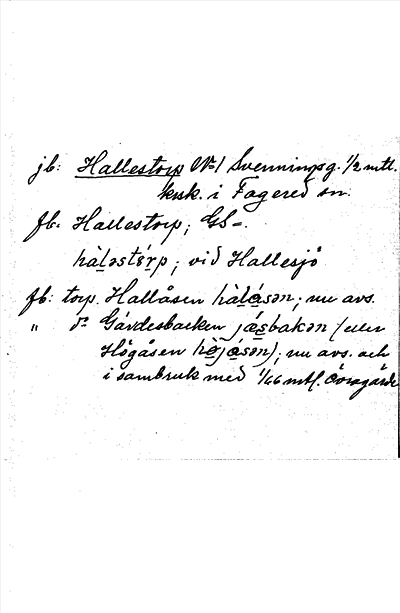 jb: Hallestorp No 1 Svenningsg. 1/2 mtl.
krsk. i Fagered sn.
fb. Hallestorp; GS=.
hàləstǿrp; vid Hallesjö
fb: torp. Hallåsen hàlåsən; nu avs.
" do Gärdesbacken jæsbakən (eller
Högåsen hòjåsən); nu avs. och
i sambruk med 1/66 mtl. Övragärde